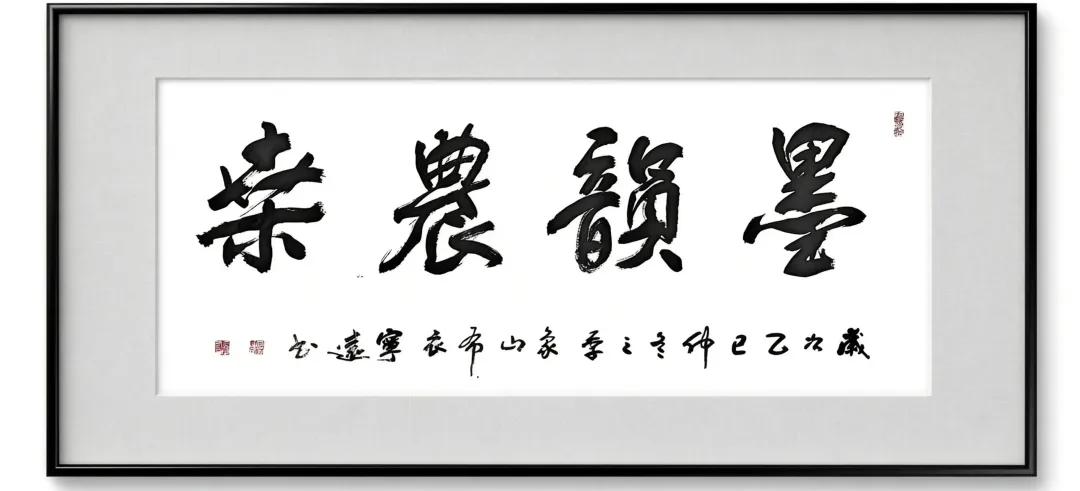 墨韻農桒
歲次乙巳仲冬之季象山布衣寧遠书